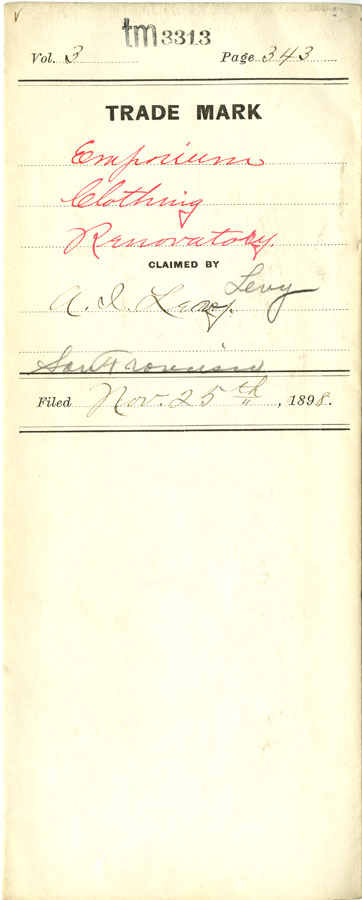 tm 3313
Vol. 3 Page 343
TRADE MARK
Emporium
Clothing
Renovatory.
CLAIMED BY
A. I. Levy. Levy
San Francisco
Filed Nov. 25th, 1898.